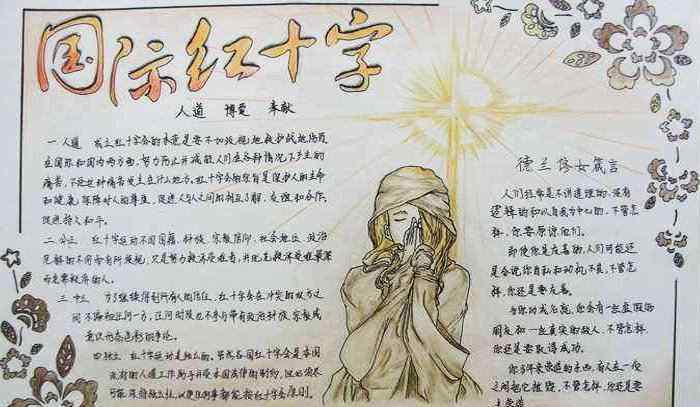 国际红十字
人道 博爱 奉献
一 人道 成立红十字会的本意是要不加歧视地救护战地伤员
在国际和国内两方面，努力防止并减轻人们在各种情况下产生的
痛苦，不论这种痛苦发生在什么地方。红十字会的宗旨是保护人的生命
和健康，保障对人的尊重，促进人与人之间的相互了解，友谊和合作，
促进持久和平。
二 公正 红十字运动不因国籍、种族、宗教信仰、社会地位 政治
见解的不同而有所歧视，只是努力救济受难者，并优先救济受难最深
而急需救济的人。
三 中立 为了继续得到所有人的信任，红十字会在冲突的双方之
间不偏袒任何一方，任何时候也不参与带有政治种族、宗教或
意识形态色彩的争论。
四 独立 红十字运动是独立的。虽然各国红十字会是本国
政府的人道工作助手并受本国法律的制约，但必须尽
可能保持独立性，以便任何时都能按红十字会原则。
德兰修女箴言
人们经常是不讲道理的，没有
逻辑的和以自我为中心的，不管怎
样，你要原谅他们。
即使你是友善的，人们可能还
是会说你自私和动机不良，不管怎
样，你还是要友善。
当你功成名就，你会有一些虚假的
朋友和一些真实的敌人，不管怎样，
你还是要取得成功。
你多年来营造的东西，有人在一夜
之间把它摧毁，不管怎样，你还是要
去营造